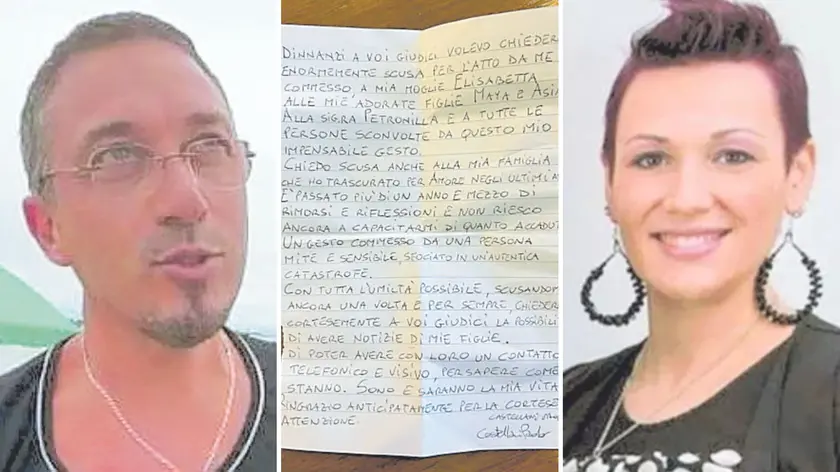 DINNANZI A VOI GIUDICI VOLEVO CHIEDER
ENORMEMENTE SCUSA PER L'ATTO DA ME
COMMESSO, A MIA MOGLIE ELISABETTA
ALLE MIE ADORATE FIGLIE MAYA E ASIA
ALLA SIG.RA PETRONILLA E A TUTTE LE
PERSONE SCONVOLTE DA QUESTO MIO
IMPENSABILE GESTO.
CHIEDO SCUSA ANCHE ALLA MIA FAMIGLIA
CHE HO TRASCURATO PER AMORE NEGLI ULTIMI A
E' PASSATO PIU' DI UN ANNO E MEZZO DI
RIMORSI E RIFLESSIONI E NON RIESCO
ANCORA A CAPACITARMI DI QUANTO ACCADUT
UN GESTO COMMESSO DA UNA PERSONA
MITE E SENSIBILE, SFOCIATO IN UN'AUTENTICA
CATASTROFE.
CON TUTTA L'UMILTA' POSSIBILE, SCUSANDOM
ANCORA UNA VOLTA E PER SEMPRE, CHIEDER
CORTESEMENTE A VOI GIUDICI LA POSSIBILI
DI AVERE NOTIZIE DI MIE FIGLIE.
DI POTER AVERE CON LORO UN CONTATTO
TELEFONICO E VISIVO, PER SAPERE COME
STANNO. SONO E SARANNO LA MIA VITA
RINGRAZIO ANTICIPATAMENTE PER LA CORTESE
ATTENZIONE.
CASTELLANI